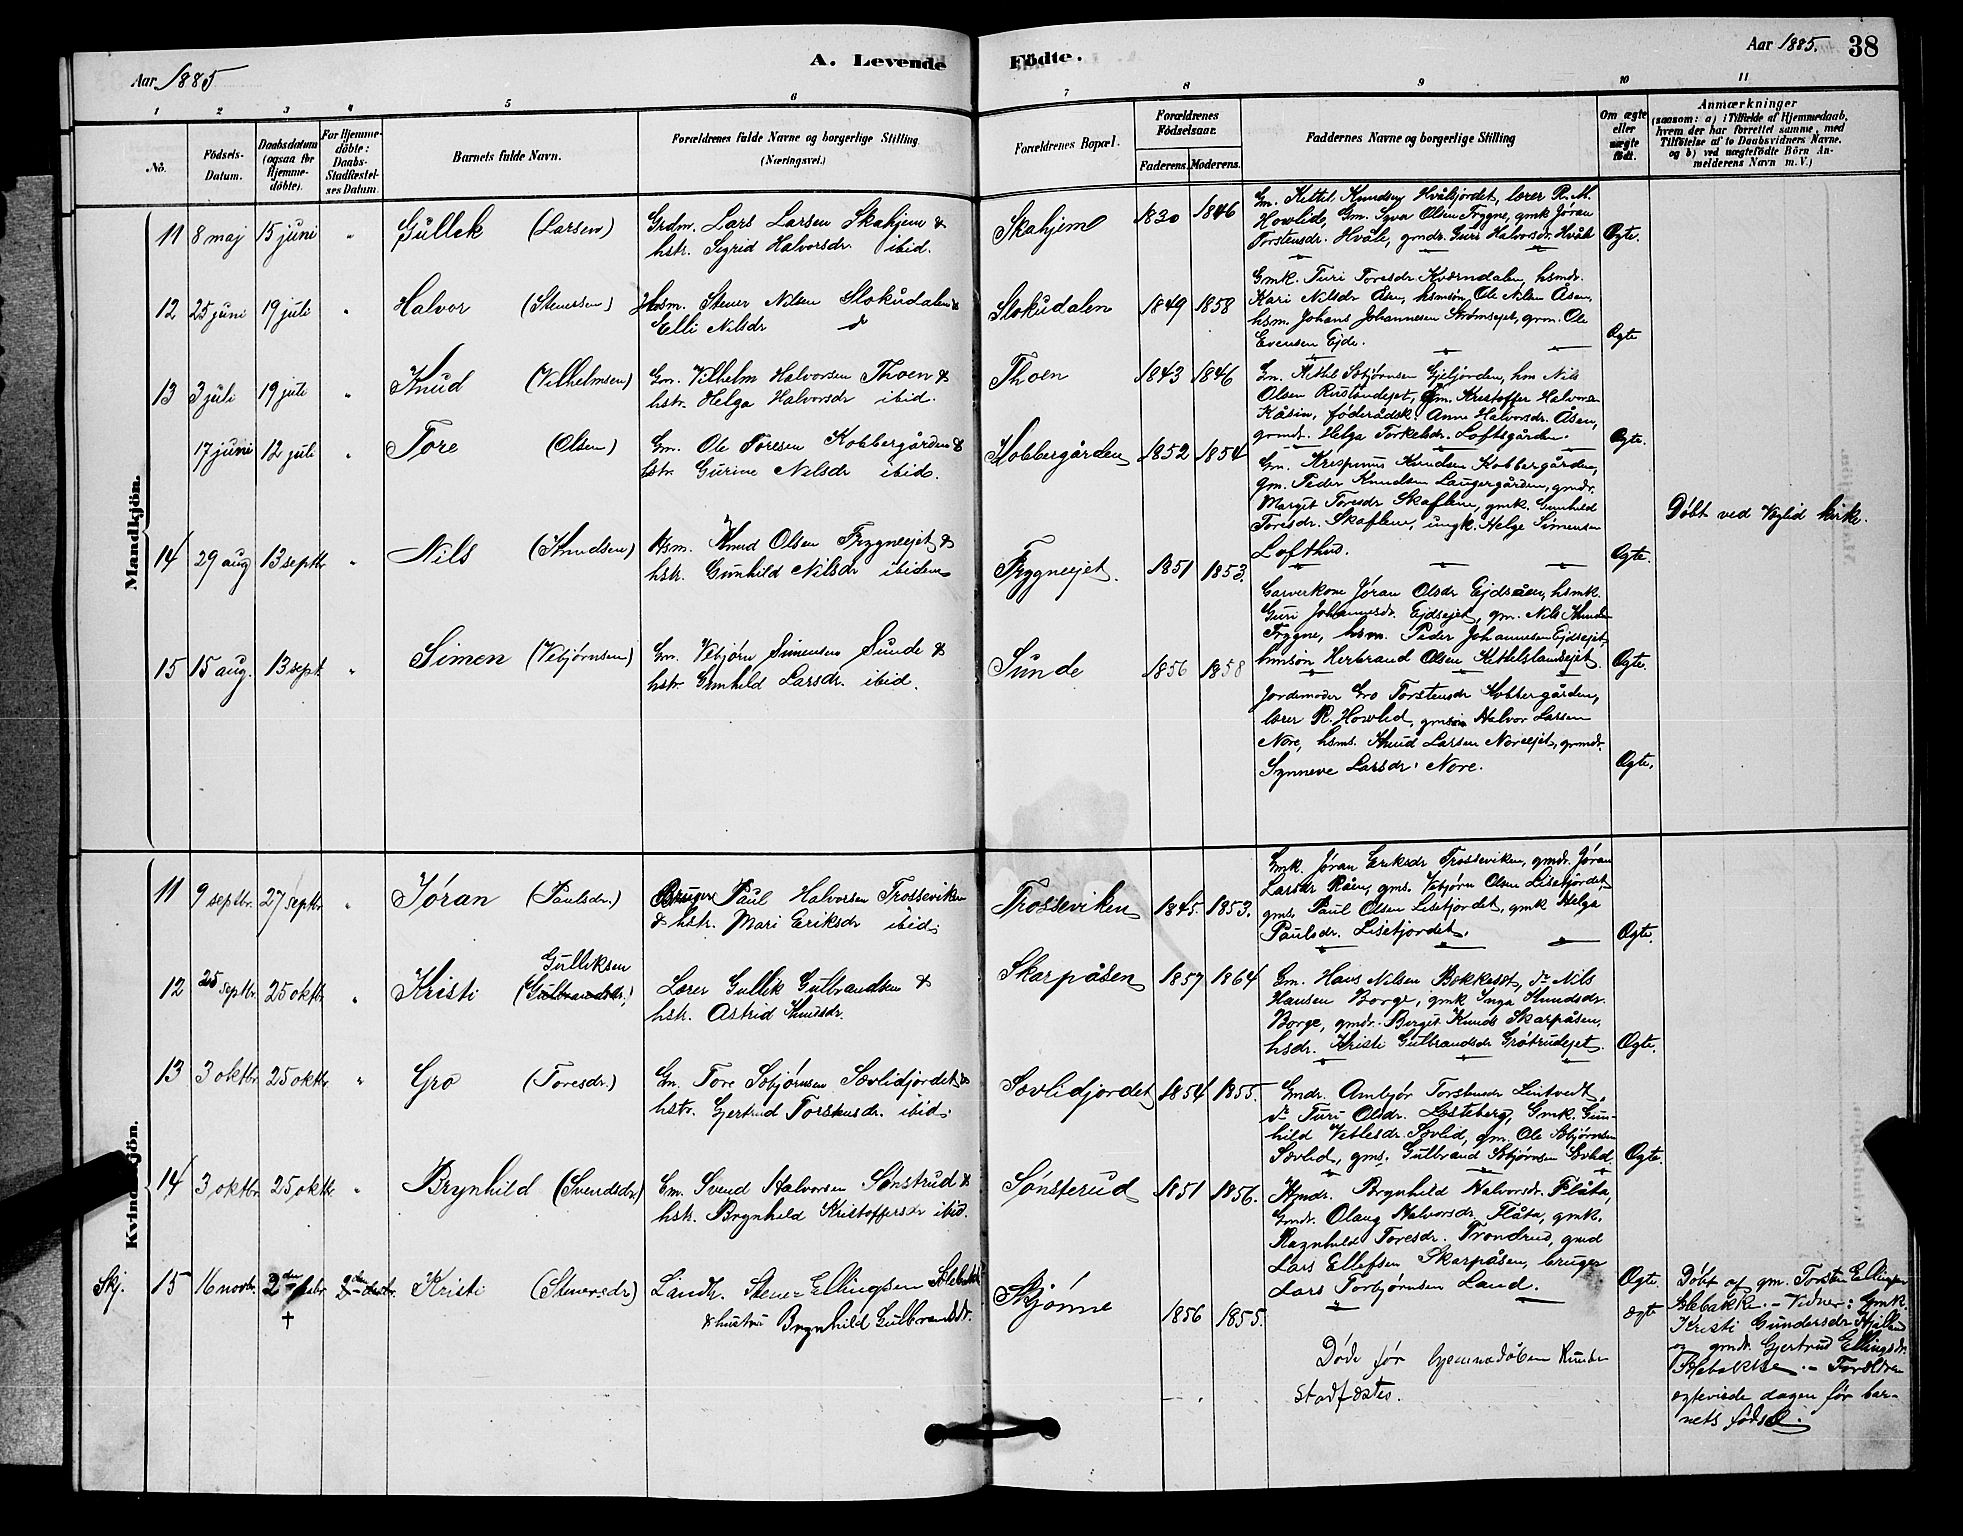 Aar 1885
A. Levende
Födte.
Aar 1885.
38
1 2 3 4 5 6 7 8 9 10 11
No.
Födsels-Datum.
Daabsdatum (ogsaa for Hjemme-döbte).
For Hjemme-döbte: Daabs-Stadfæstel-ses Datum.
Barnets fulde Navn.
Forældrenes fulde Navne og borgerlige Stilling (Næringsvei.)
Forældrenes Bopæl.
Forældrenes Födselsaar.
Faderens. Moderens.
Faddernes Navne og borgerlige Stilling
Om ægte eller uægte födt.
Anmærkninger
(saasom: a) i Tilfælde af Hjemmedaab,
hvem der har forrettet samme, med
Tilföielse af to Daabsvidners Navne,
og b) ved uægtefödte Börn An-
melderens Navn m. V.)
Mandkjön.
11 8 maj 15 juni " Gullek (Larsen)
Grdm. Lars Larsen Skahjem &
hstr. Sigrid Halvorsdr. ibid.
Skahjem 1830 1846
Gm. Kittil Knudsen Hvålejordet, lærer R. M.
Howlid, Gm. Syver Olsen Frygne, gmk Jøran
Torstensdr. Hvåle, gmdr. Guri Halvorsdr. Hvåle
Ægte.
12 25 juni 19 juli " Halvor (Stenersen)
Husm. Stener Nilsen Stokudalen &
Elli Nilsdr
Stokudalen 1849 1858
Gmk. Turi Toresdr Kværndalen, hsmdr.
Kari Nilsdr Åsen, hsmsön Ole Nilsen Åsen,
hsm. Johans Johannesen Strømsejet, grm. Ole
Evensen Ejde.
Ægte
13 3 juli 19 juli " Knud (Vilhelmsen)
Gm. Vilhelm Halvorsen Thoen &
hstr. Helga Halvorsdr ibid.
Thoen 1843 1846
Gm. Kittil Sebjørnsen Gjeljorden, hm Nils
Olsen Rustandejet, Gm. Kristoffer Halvorsen
Kåsin, föderådsk. Anne Halvorsdr. Åsen,
grmdr. Helga Torkelsdr. Loftsgården.
Ægte.
17 juni 12 juli " Tore (Olsen)
Gm. Ole Toresen Kobbergården &
hstr Gurine Nilsdr ibid.
Kobbergården 1852 1854
Gm. Krispinus Knudsen Kobbergården,
gm. Peder Knudsen Laugergården, gmdr.
Margit Toresdr Skaflem, gmk. Gunhild
Toresdr. Skaflem, ungk. Helge Simensen
Lofthus.
Ægte.
Döbt ved Veglid kirke.
14 29 aug 13 septbr " Nils (Knudsen)
Hsm. Knud Olsen Frygneejet &
hstr. Gunhild Nilsdr ibidem
Frygneejet. 1851 1853.
Garverkone Jøran Olsdr Ejdsåen, hsmk.
Guri Johannesdr Ejdsejet, gm. Nils Knudsen
Frygne, hsm. Peder Johannesen Ejdsejet,
hmsön Herbrand Olsen Kittelslandsejet.
Ægte.
15 15 aug. 13 sept. " Simen (Vebjørnsen)
Gm. Vebjørn Simensen Sunde &
hstr. Gunhild Larsdr. ibid.
Sunde 1856 1858
Jordemoder Gro Torstensdr Kobbergården,
lærer R. Howlid, gmsön Halvor Larsen
Nore, hsms. Knud Larsen Noreejet, grmdr.
Synneve Larsdr. Nore.
Ægte.
Kvindekjön.
11 9 septbr. 27 septbr. " Jøran (Paulsdr.)
Bruger Paul Halvorsen Trosseviken
& hstr. Mari Eriksdr ibid.
Trosseviken 1845. 1853.
Gmk. Jøran Eriksdr Trosseviken, gmdr. Jøran
Larsdr Råen, gms. Vebjørn Olsen Lisetjordet,
gms. Paul Olsen Lisetjordet, gmk Helga
Paulsdr. Lisetjordet.
Ægte.
12 25 septbr. 25 oktbr " Kristi Gulliksen (Gulbrandsdr.)
Lærer Gullik Gulbrandsen &
hstr. Astrid Knudsdr.
Skarpåsen 1857 1864
Gm. Hans Nilsen Bekkeset, Do Nils
Hansen Borge, gmk Inga Knudsdr.
Borge, gmdr. Birgit Knuds Skarpåsen,
hsdr. Kristi Gulbrandsdr Grötrudejet.
Ægte.
13 3 oktbr. 25 oktbr. " Gro (Toresdr.)
Gm. Tore Sebjørnsen Sævlidjordet &
hstr. Gjertrud Torstensdr. ibid.
Sævlidjordet 1854 1855.
Gmdr. Ambjør Torstensdr Lintvedt,
Do Turi Olsdr. Losteberg, Gmk. Gun-
hild Vetlesdr. Sævlid, gm. Ole Sebjørnsen
Sævlid, gms. Gulbrand Sebjørnsen Sævlid.
Ægte.
14 3 oktbr. 25 oktbr. " Brynhild (Svendsdr)
Gm. Svend Halvorsen Sønstrud &
hstr. Brynhild Kristoffersdr ibid.
Sønsterud 1851 1856.
Hmdr. Brynhild Halvorsdr. Flåta,
Gmdr. Olaug Halvorsdr Flåta, gmk.
Ragnhild Toresdr. Trondrud, gmd
Lars Ellefsen Skarpåsen, bruger
Lars Torbjørnsen Land.
Ægte.
Skj. 15 16 novbr. 2den decbr † 2den decbr. Kristi (Stenersdr)
Landh. Stener Ellingsen Flebakk
& hustru Brynhild Gulbrandsdr.
Skjønne 1856 1855.
ægte
Döde før hjemmedåben kunde
stadfæstes.
Döbt af gm. Torsten Ellingsen
Flebakke. - Vidner: Gmk.
Kristi Gundersdr Hjalland
og gmdr. Gjertrud Ellingsdr.
Flebakke. - Forældre
egteviede dagen før bar-
nets födsel.